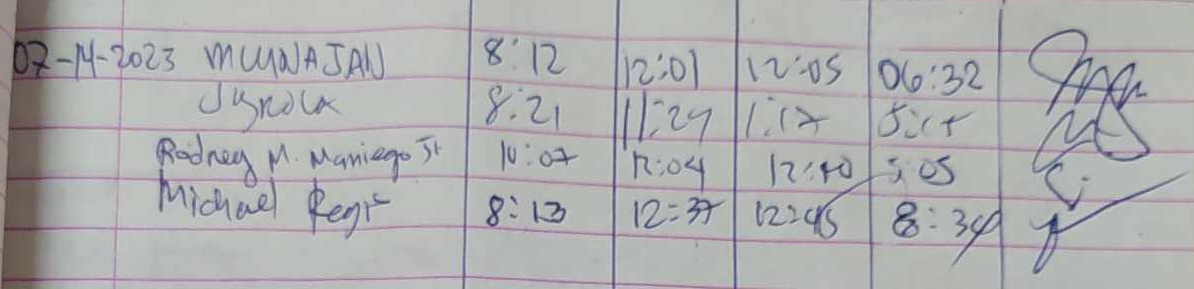 07-14-2023 MUUNAJAN 8:12 12:01 12:05 06:32
8:21 11:29 1:17
Rodney M. Maniego Jr 10:07 12:04 12:40 5:05
Michael Regis 8:13 12:37 12:45 8:34